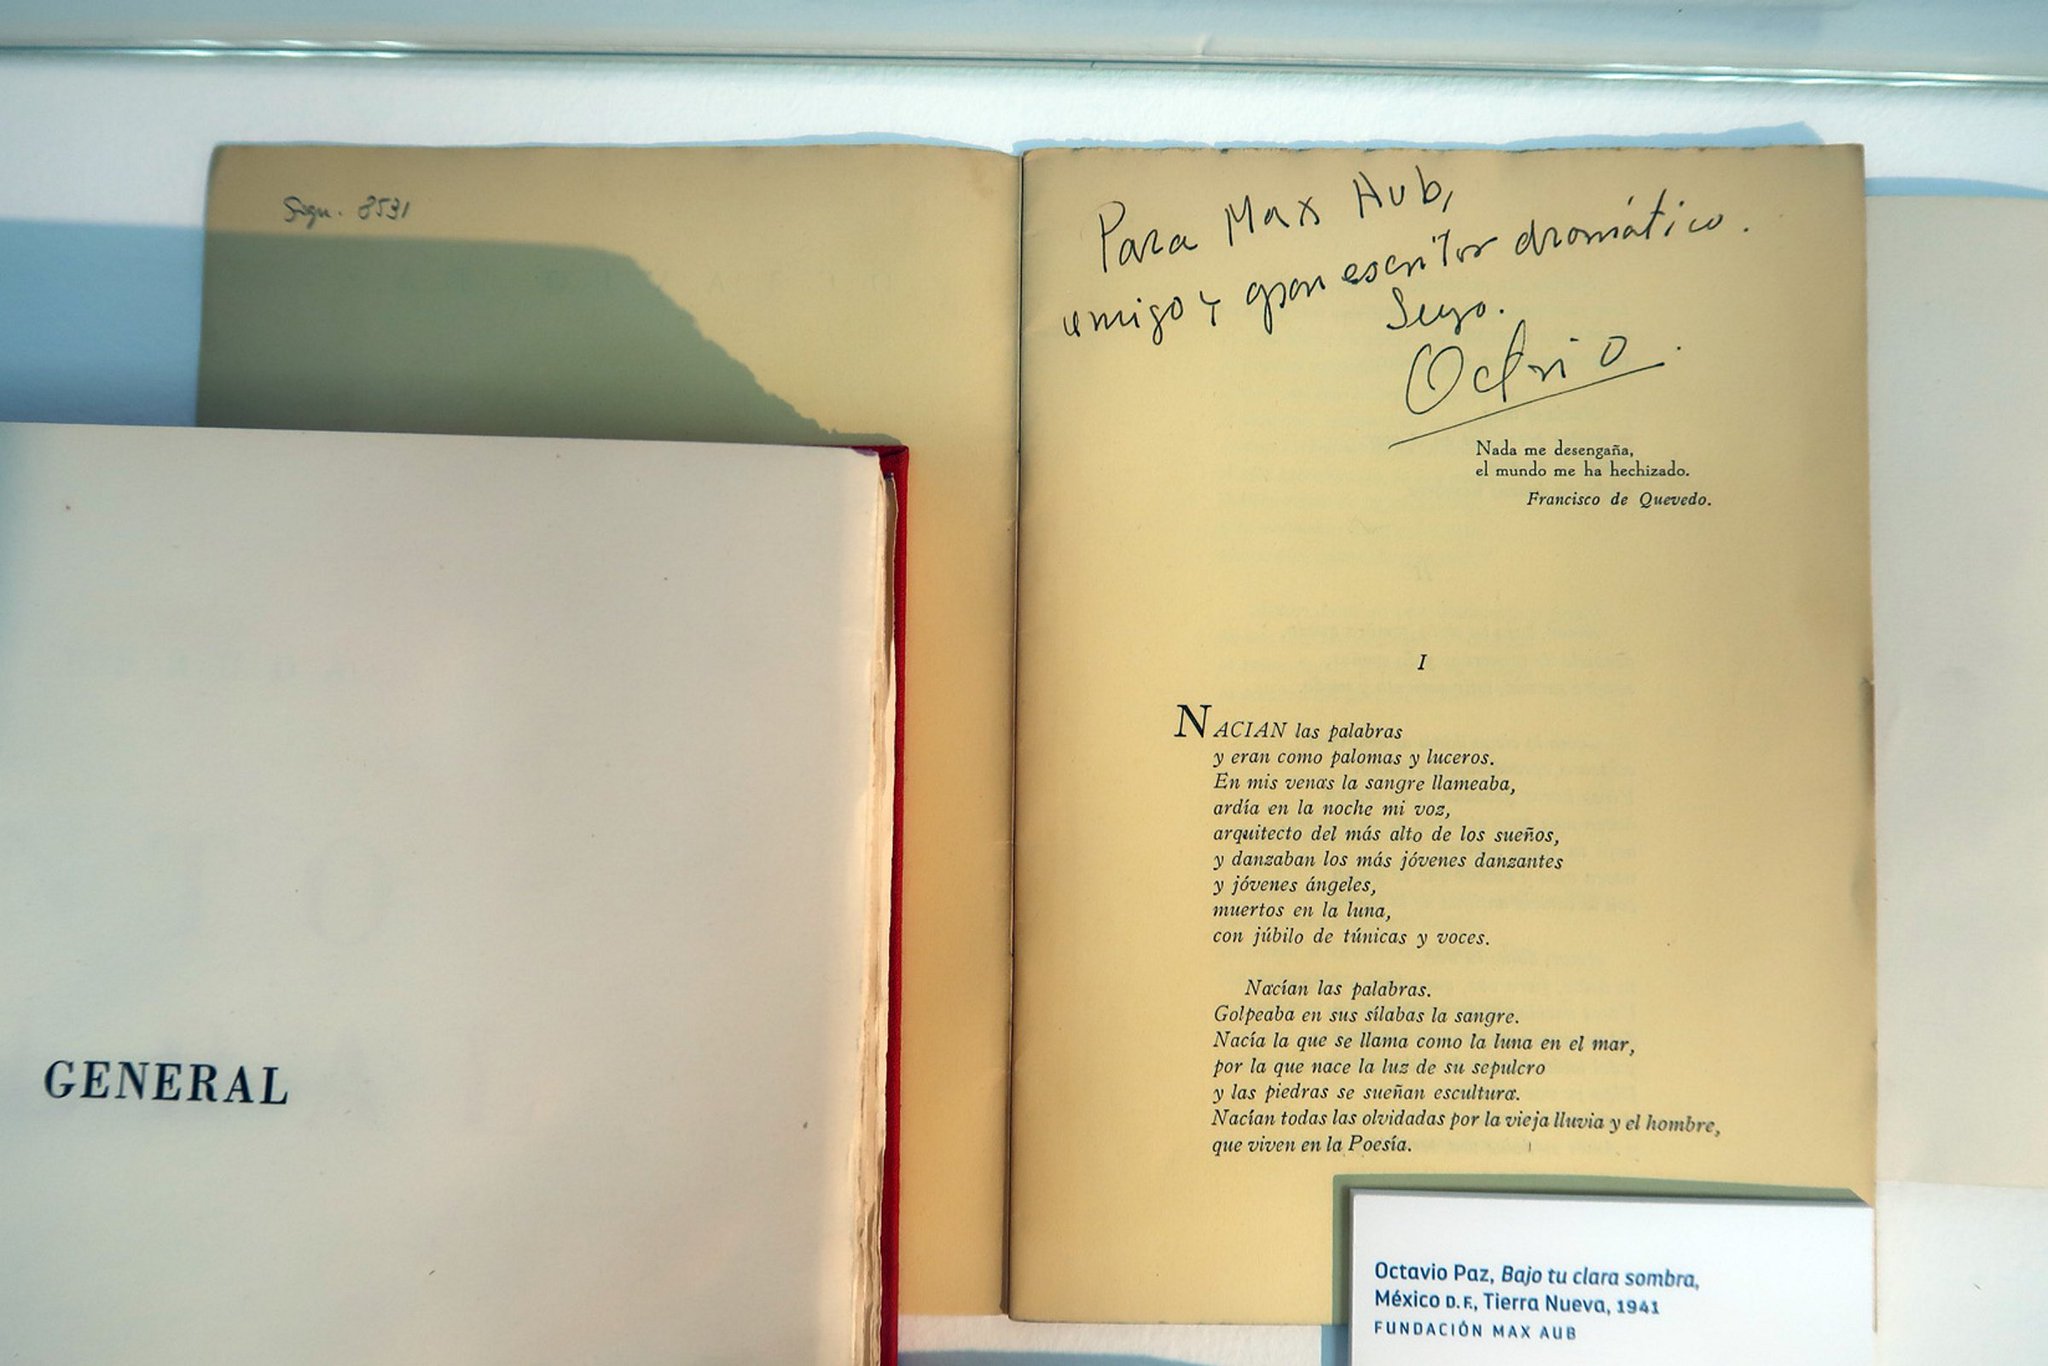 Sign. 8531
Para Max Aub,
amigo y gran escritor dramático.
Suyo.
Octavio
Nada me desengaña,
el mundo me ha hechizado.
Francisco de Quevedo.
I
NACIAN las palabras
y eran como palomas y luceros.
En mis venas la sangre llameaba,
ardía en la noche mi voz,
arquitecto del más alto de los sueños,
y danzaban los más jóvenes danzantes
y jóvenes ángeles,
muertos en la luna,
con júbilo de túnicas y voces.
Nacían las palabras.
Golpeaba en sus sílabas la sangre.
Nacía la que se llama como la luna en el mar,
por la que nace la luz de su sepulcro
y las piedras se sueñan escultura.
Nacían todas las olvidadas por la vieja lluvia y el hombre,
que viven en la Poesía.
GENERAL
Octavio Paz, Bajo tu clara sombra,
México D.F., Tierra Nueva, 1941
FUNDACIÓN MAX AUB